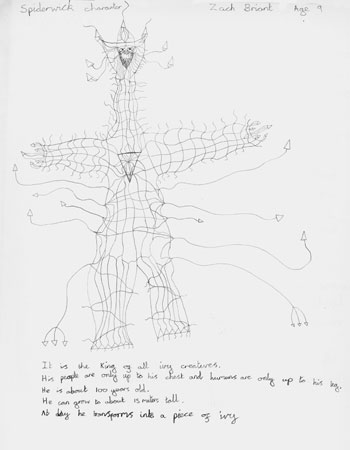 Spiderwick character> Zach Briant Age 9
It is the King of all ivy creatures.
His people are only up to his chest and humans are only up to his leg.
He is about 100 years old.
He can grow to about 15 meters tall.
At day he transforms into a piece of ivy